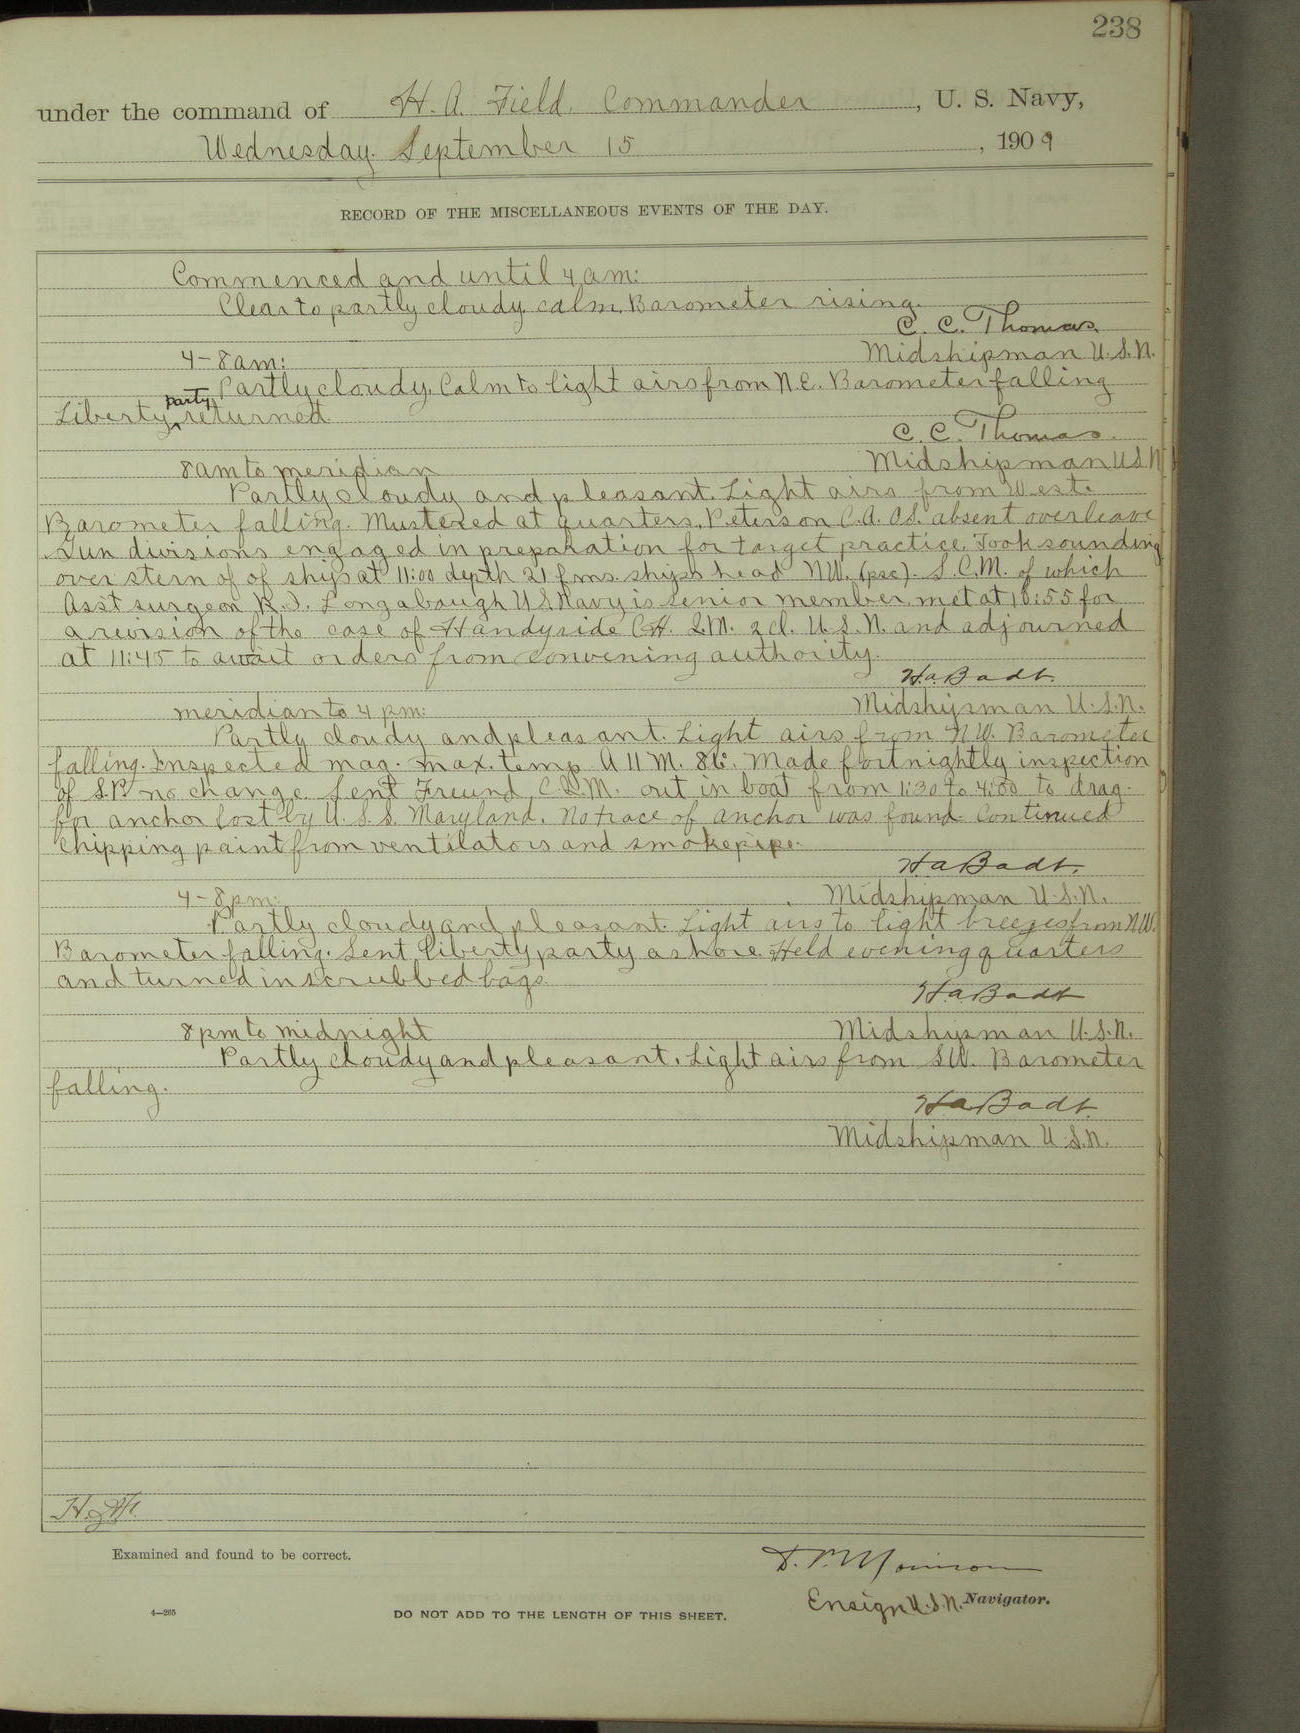 238
under the command of H. A. Field. Commander, U. S. Navy,
Wednesday. September 15, 1909
RECORD OF THE MISCELLANEOUS EVENTS OF THE DAY.
Commenced and until 4 am:
Clear to partly cloudy calm. Barometer rising.
C. C. Thomas.
Midshipman U.S.N.
4-8 am:
Partly cloudy, Calm to light airs from N.E. Barometer falling
Liberty party returned
C. C. Thomas.
Midshipman U.S.N
8 am to meridian
Partly cloudy and pleasant. Light airs from West.
Barometer falling. Mustered at quarters, Peterson C.A. O.S. absent overleave
Gun divisions engaged in preparation for target practice. Took sounding
over stern of of ship at 11:00 depth 21 fms. ships head NW. (psc). S.C.M. of which
Ass't surgeon Longabaugh U S Navy is senior member met at 10:55 for
a revision of the case of Handyside C.H. 2 cl. U.S.N. and adjourned
at 11:45 to await orders from convening authority.
H.A. Badt.
Midshipman U.S.N.
meridian to 4 pm:
Partly cloudy and pleasant. Light airs from NW. Barometer
falling. Inspected mag. max. temp. A 11 M. 86°. Made fortnightly inspection
of S.P. no change. Sent Freund, out in boat from 1:30 to 4:00 to drag
for anchor lost by U.S.S. Maryland. No trace of anchor was found. Continued
chipping paint from ventilators and smokepipe.
H A Badt.
Midshipman U.S.N.
4-8 pm:
Partly cloudy and pleasant. Light airs to light breezes from NW.
Barometer falling. Sent liberty party ashore. Held evening quarters
and turned in scrubbed bags.
H.A Badt
Midshipman U.S.N.
8 pm to midnight
Partly cloudy and pleasant. Light airs from SW. Barometer
falling.
H A Badt.
Midshipman U.S.N.
Examined and found to be correct.
Ensign U.S.N. Navigator.
4—265
DO NOT ADD TO THE LENGTH OF THIS SHEET.